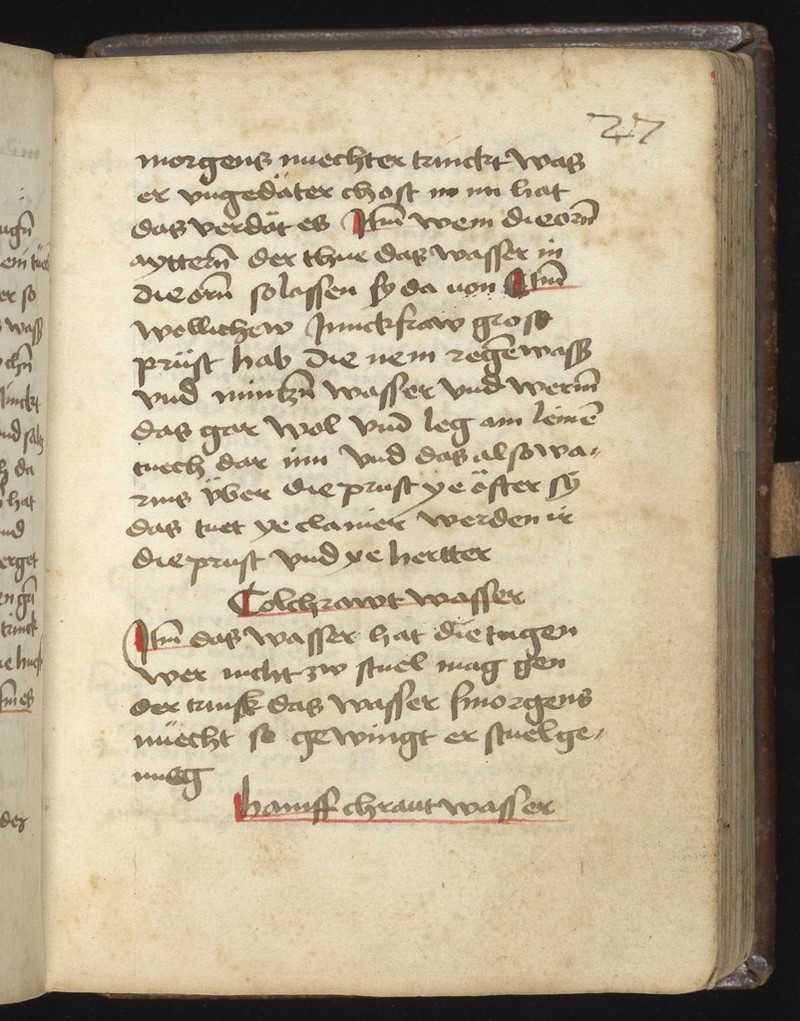 27
morgens nuechter trinckt was
er vngedäter chost in im hat
das verdät es Itm̄ wem die orn̄
ayttern̄ der thue das wasser in
die orn̄ so lassen sy da von Itm̄
wollichew Junckfraw gross
prüst hab die nem regē wass
vnd mintzn̄ wasser vnd werm̄
das gar wol vnd leg ain leinē
tuech dar inn vnd das also wa-
rms v̈ber die prust ye öfter sy
das tuet ye clainer werden ir
die prust vnd ye hertter
Colchrawt wasser
Itm̄ das wasser hat die tugen
wer nicht zw stuel mag gen
der trinkh das wasser smorgens
nüecht so gewingt er stuel ge-
nueg
hanff chraut wasser